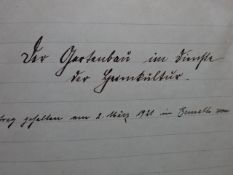 Der Gartenbau im Dienste
der Heimkultur.
gehalten am 2. März 1921 in